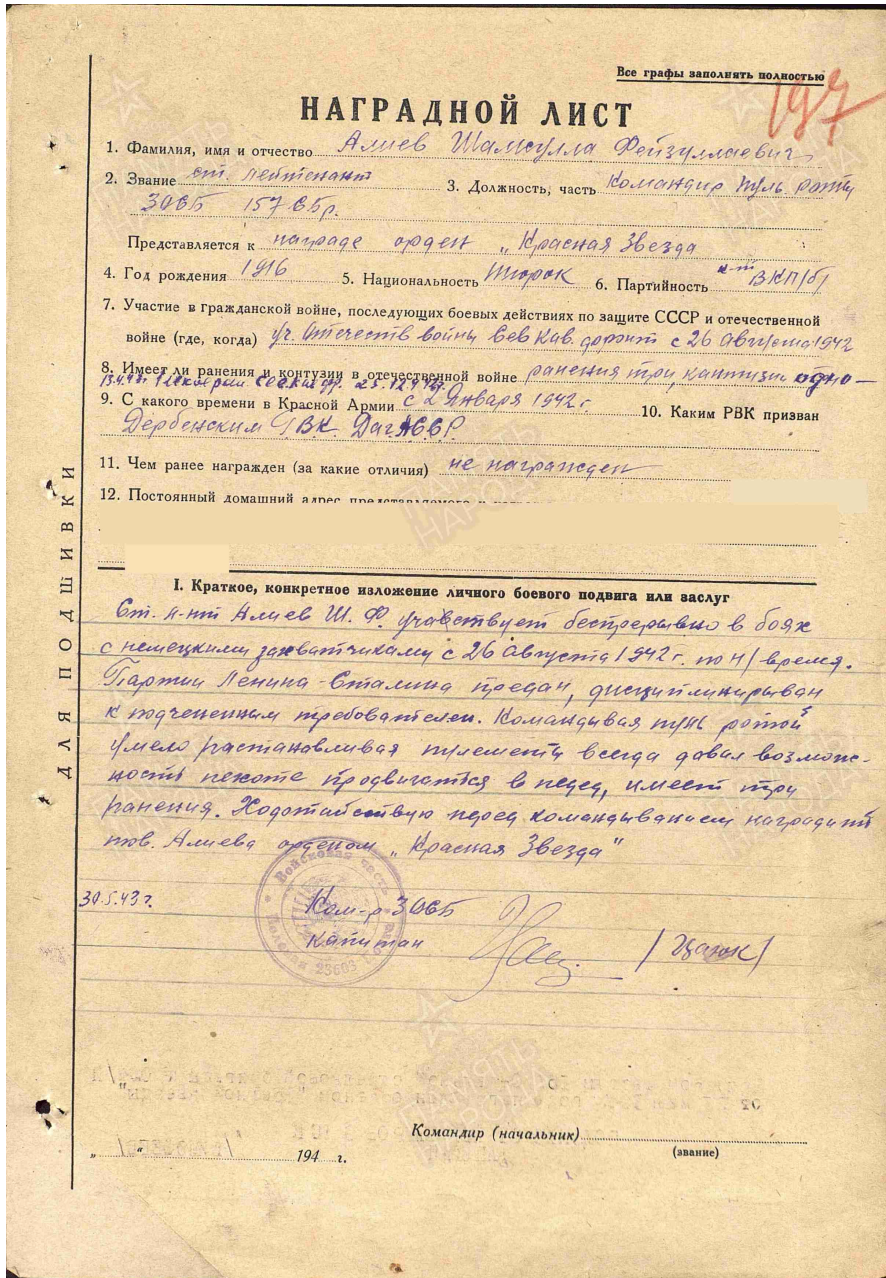 Все графы заполнять полностью
197
НАГРАДНОЙ ЛИСТ
1. Фамилия, имя и отчество Алиев Шамсулла Фейзуллаевич
2. Звание ст. лейтенант 3. Должность, часть Командир пуль роты
3 ОСБ 157 СБр.
Представляется к награде орден „Красная Звезда
4. Год рождения 1916 5. Национальность Тюрок 6. Партийность к-т ВКП/б/
7. Участие в гражданской войне, последующих боевых действиях по защите СССР и отечественной
войне (где, когда) уч. Отечеств войны Сев Кав. фронт с 26 Августа 1942
8. Имеет ли ранения и контузии в отечественной войне ранения три, контузии одно
25.12.42г.
9. С какого времени в Красной Армии с 2 Января 1942 г. 10. Каким РВК призван
Дербенским ГВК. ДагАССР.
11. Чем ранее награжден (за какие отличия) не награжден
12. Постоянный домашний адрес представляемого
ДЛЯ ПОДШИВКИ
I. Краткое, конкретное изложение личного боевого подвига или заслуг
Ст. л-нт Алиев Ш. Ф. учавствует беспрерывно в боях
с немецкими захватчиками с 26 Августа 1942 г. по н/время.
Партии Ленина-Сталина предан, дисциплинирыван
к подчененным требователен. Командывая пуль ротой
умело растановливая пулеметы всегда давал возмож-
ность пехоте продвигаться в перед, имеет три
ранения. Ходотайствую перед командыванием наградить
тов. Алиева орденом „Красная Звезда"
30.5.43г.
Ком-р 3 ОСБ
капитан /Цаюк/
Войсковая часть
Полевая 23603
Командир (начальник)
„ " 194 г. (звание)